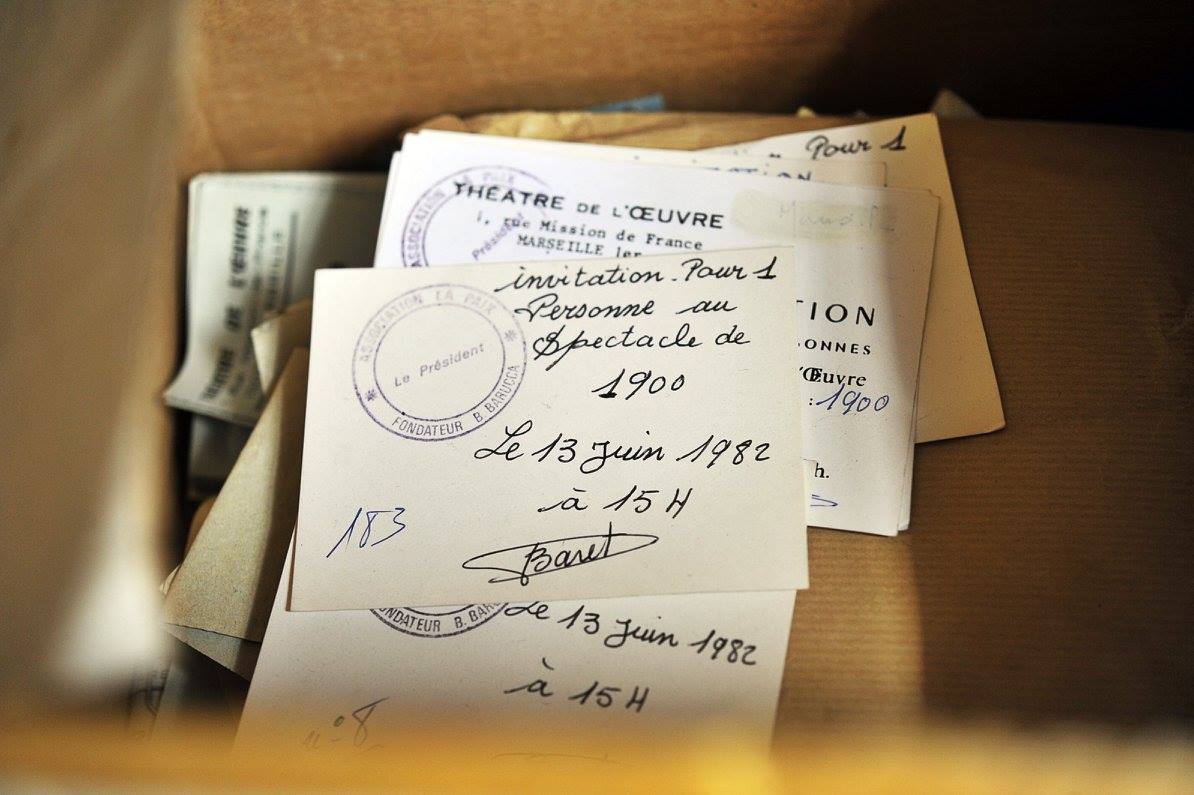 Pour 1
THÉATRE DE L'ŒUVRE
1, rue Mission de France
MARSEILLE 1er
ASSOCIATION LA PAIX
Président
TION
ONNES
Œuvre
: 1900
h.
invitation. Pour 1
Personne au
Spectacle de
1900
Le 13 Juin 1982
à 15 H
Baret
183
ASSOCIATION LA PAIX
Le Président
FONDATEUR B. BARUCCA
NDATEUR B. BARU
Le 13 Juin 1982
à 15 H
n° 8